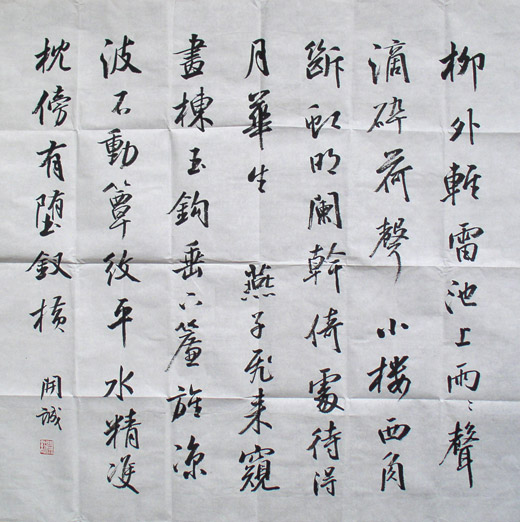 柳外輕雷池上雨〻聲
滴碎荷聲 小楼西角
斷虹明闌幹倚處待得
月華生 燕子飛来窺
畫棟玉鈎垂下簾旌涼
波不動簟紋平水精雙
枕傍有堕釵横
開誠